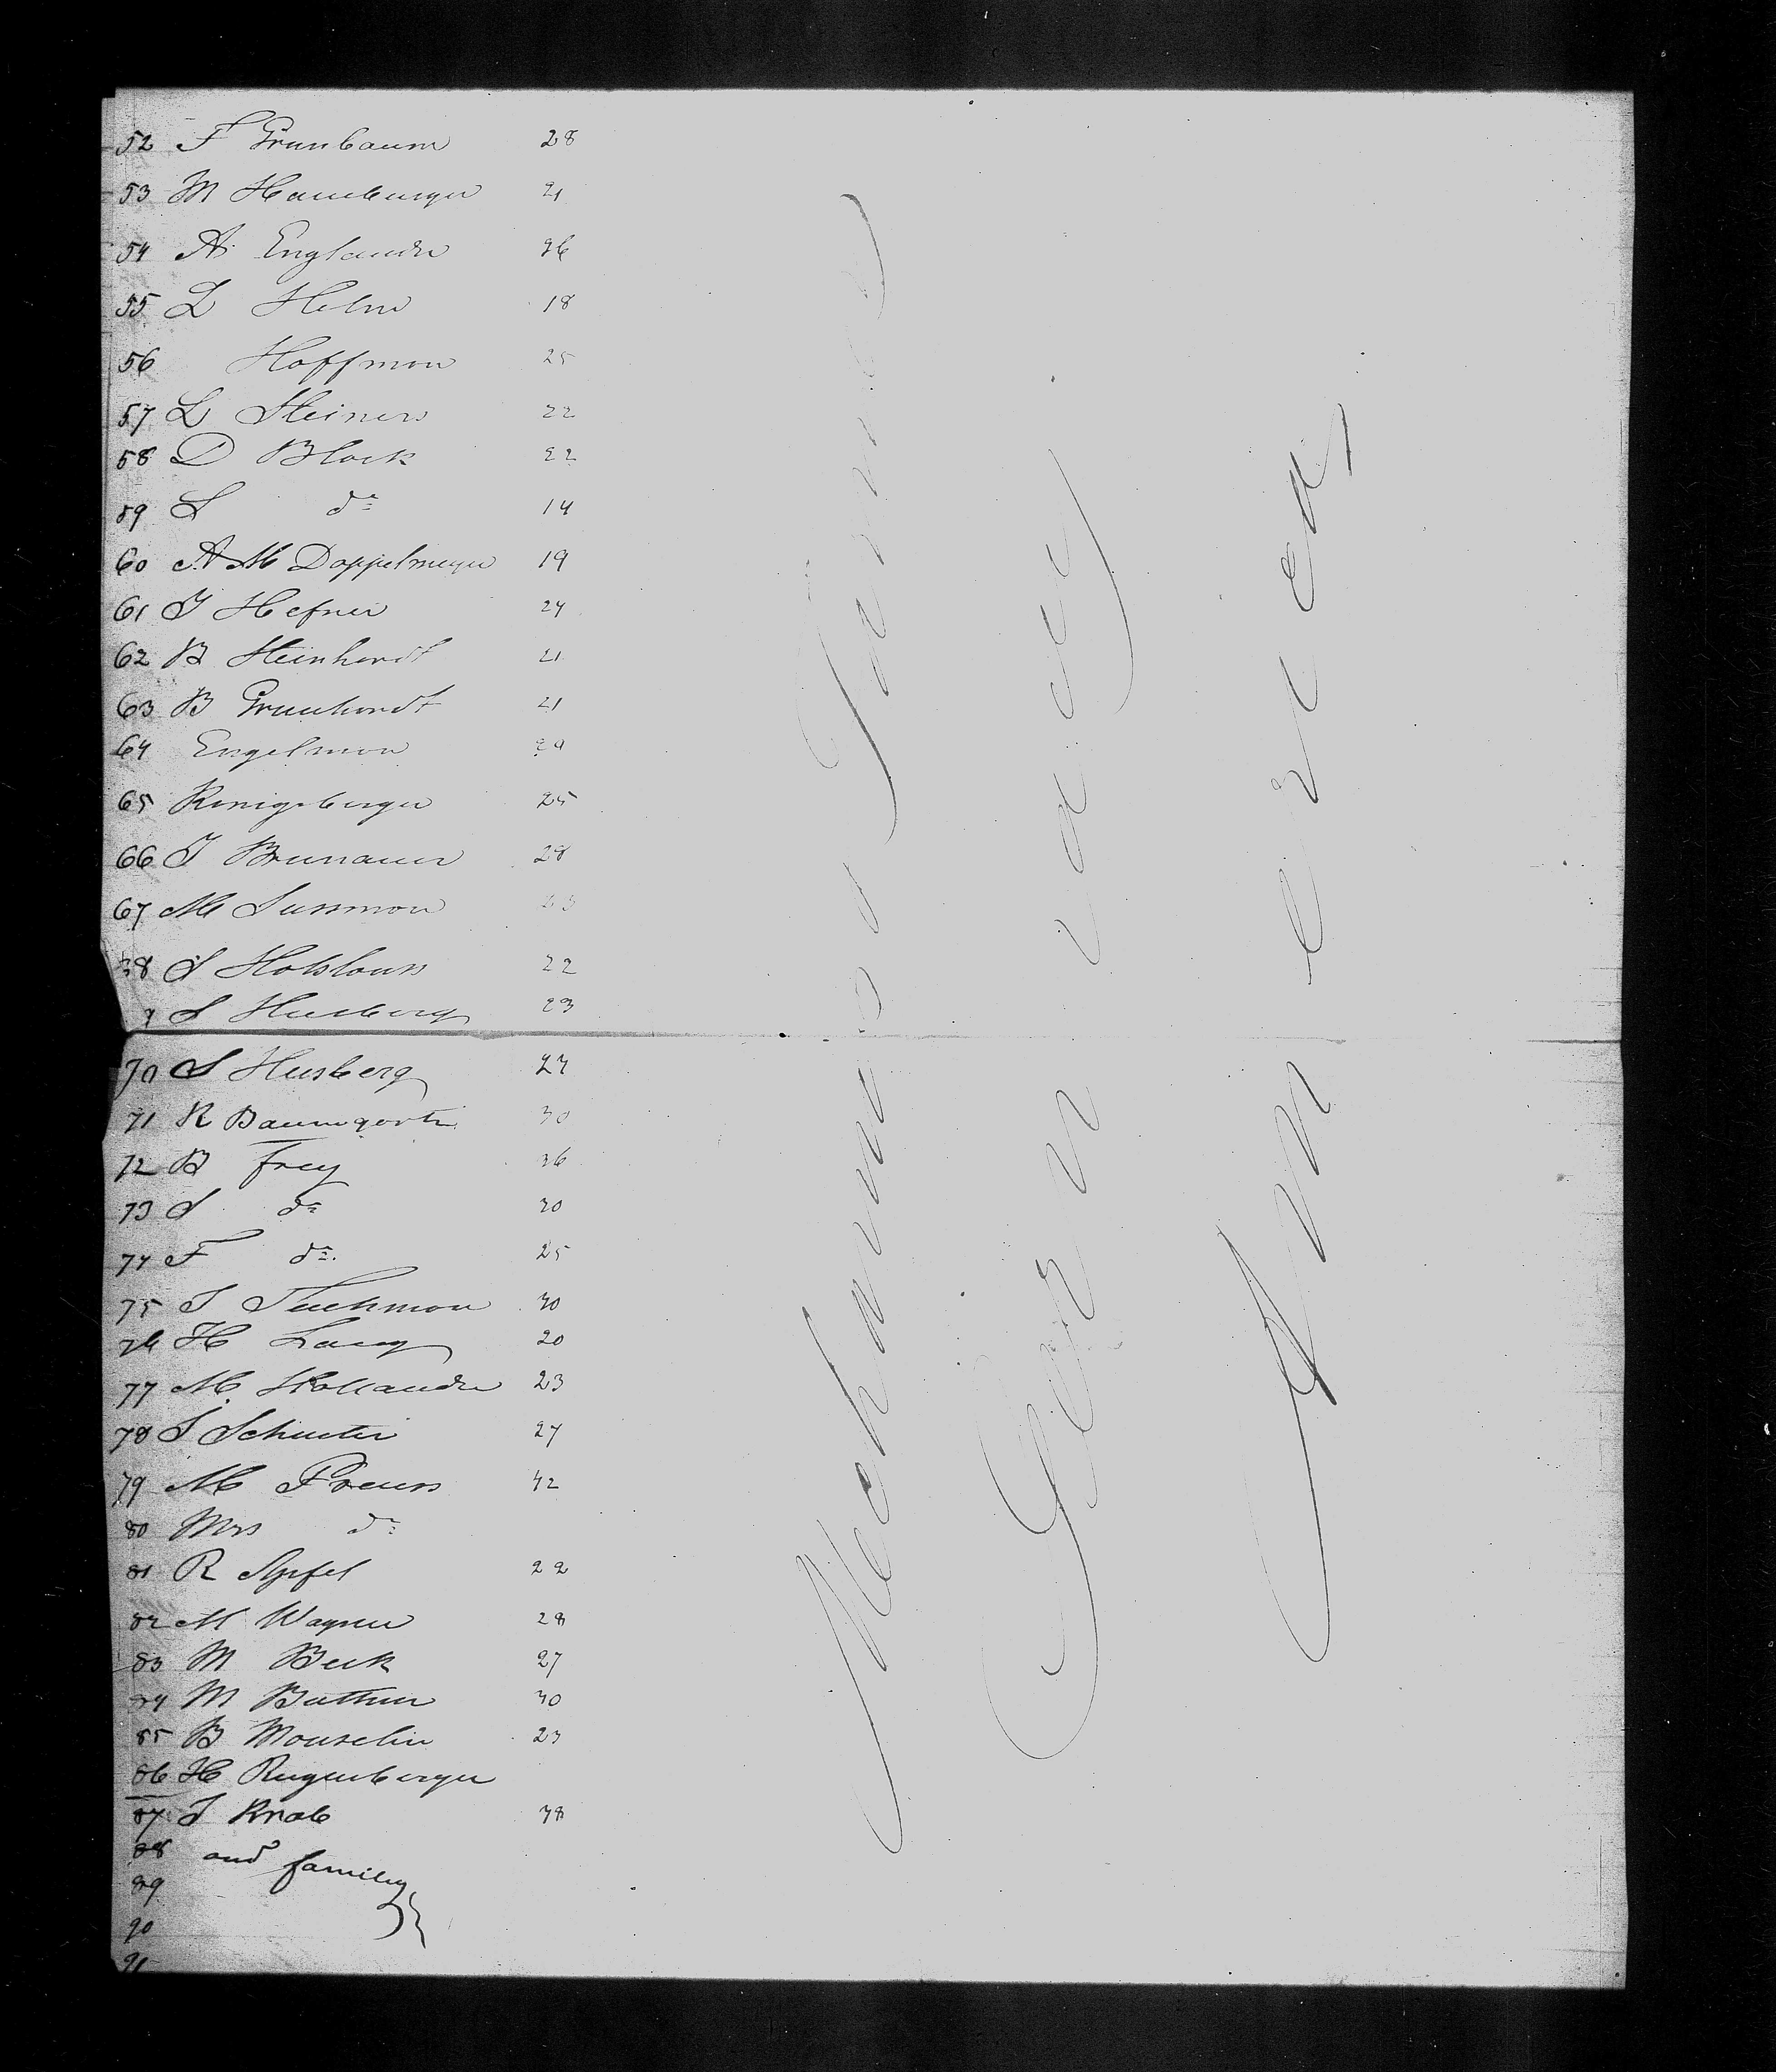 52 F Grunbaum 28
53 M Hamburger 21
54 A. Englander 26
55 L Helm 18
56 Hoffman 25
57 L Steiner 22
58 D Block 22
59 L do 14
60 A M Doppelmeyer 19
61 J Hefner 24
62 B Steinhardt 21
63 B Grunhardt 21
64 Engelman 29
65 Konigsberger 25
66 J Brunauer 28
67 M Sussman 23
68 S 22
9 S Husberg 23
70 S Husberg 24
71 R Baumgarten 30
72 B Frey 36
73 S do 30
74 F do. 25
75 J Tuchman 30
76 H Lang 20
77 M Hollander 23
78 S Schuster 27
79 M Preuss 42
80 Mrs do
81 R Apfel 22
82 M Wagner 28
83 M Beck 27
84 M Buttner 30
85 B Mouselin 23
86 H
87 J Knab 38
88 and family
89
90
91
Mechanics & Farmers
Germany
America